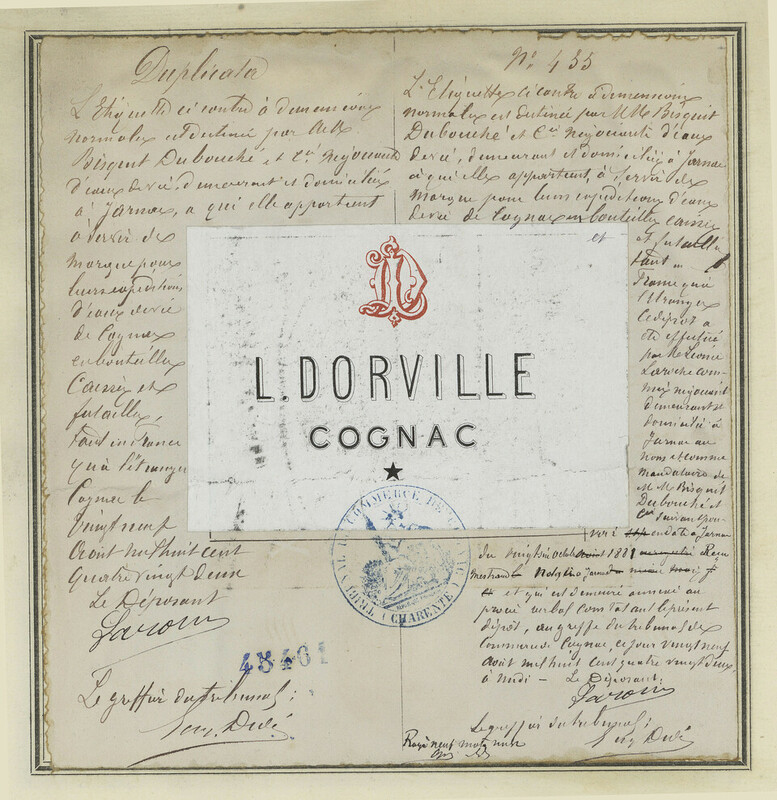 Duplicata
L'Etiquette ci contre à dimensions
normales est destinée par MM
Bisquit Dubouché et Cie négociants
d'eaux de vie, demeurant et domiciliés
à Jarnac, a qui elle appartient
a servir de
marque pour
leurs expéditions
d'eaux de vie
de Cognac
en bouteilles
Caisses et
futailles,
tant en France
qu'à l'étranger
Cognac le
vingt neuf
Août mil huit cent
quatre vingt deux
Le Déposant
Laroche
48461
Le greffier du tribunal;
N° 435
L'Etiquette ci contre à dimensions
normales est destinée par MM Bisquit
Dubouché et Cie négociants d'eaux
de vie, demeurant et domiciliés à Jarnac
à qui elle appartient, à servir de
marque pour leurs expéditions d'eaux
de vie de Cognac en bouteilles caisses
et futailles
tant en
France qu'à
l'étranger
Ce dépôt a
été effectué
par M Léonie
Laroche com-
mis négociant
demeurant et
domicilié à
Jarnac au
nom et comme
mandataire de
M M Bisquit
Dubouché et
Cie suivant pou-
voir en date à Jarnac
du vingt six octobre 1881
et qui est demeuré annexé au
procès verbal constatant le présent
dépôt, au greffe du tribunal de
Commerce de Cognac, ce jour vingt neuf
Août mil huit cent quatre vingt deux,
à midi — Le Déposant;
Laroche
Le greffier du tribunal;
Rayé neuf mots nuls
et
LD
L. DORVILLE
COGNAC
★
TRIBUNAL DE COMMERCE DE COGNAC
(CHARENTE)